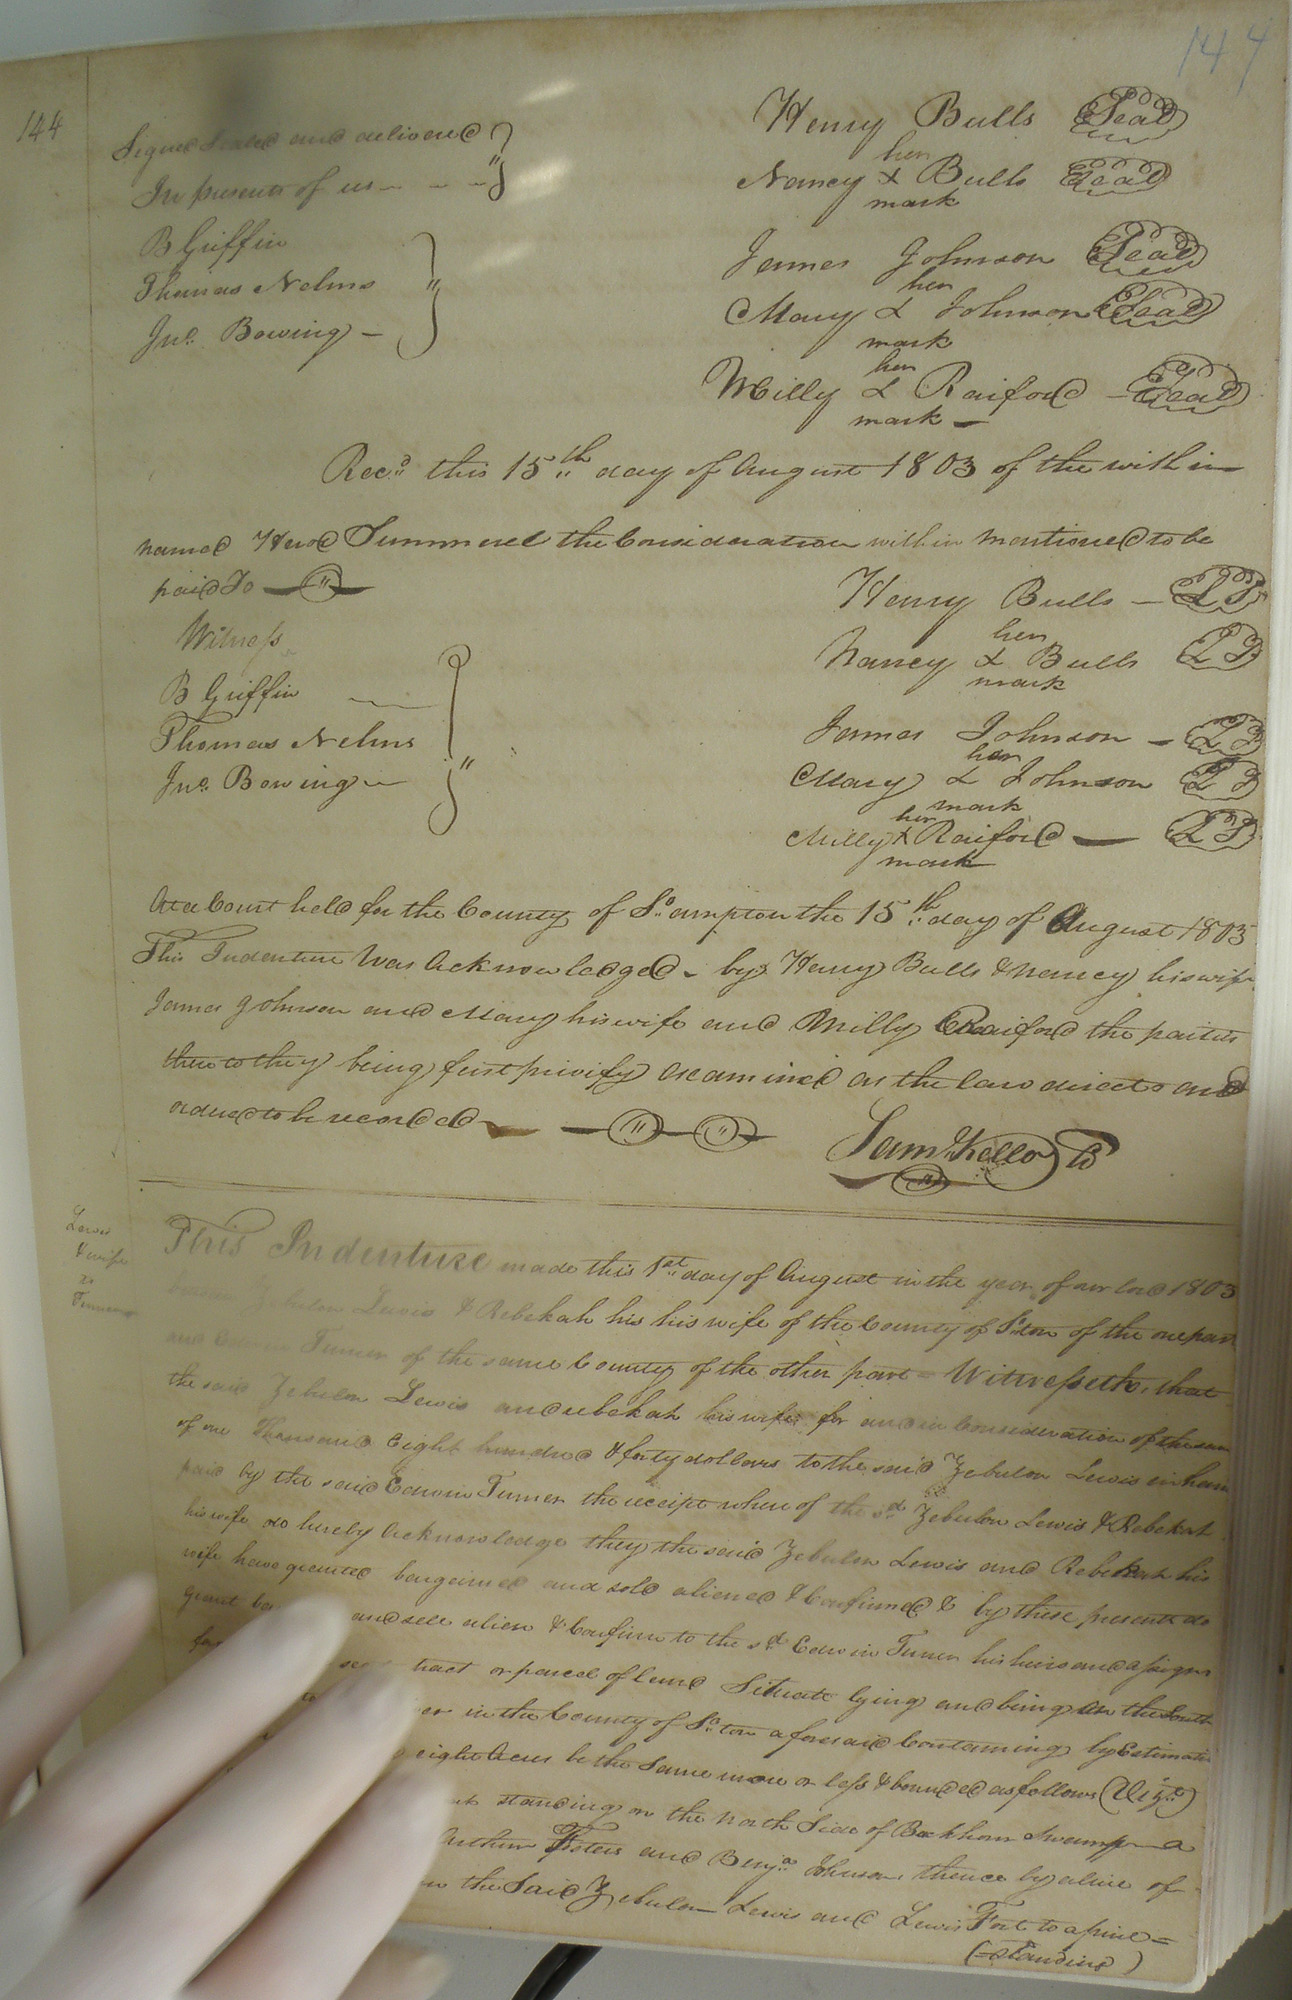 144
144
Signed Sealed and delivered
In presents of us
B Griffin
Thomas Nelms
Jno. Bowing
Henry Bulls Seal
her
Nancy X Bulls Seal
mark
James Johnson Seal
her
Mary X Johnson Seal
mark
her
Milly X Raiford Seal
mark
Recd. this 15th day of August 1803 of the within
named the Consideration within mentioned to be
paid To
Witness
B Griffin
Thomas Nelms
Jno. Bowing
Henry Bulls LS
her
Nancy X Bulls LS
mark
James Johnson LS
her
Mary X Johnson LS
mark
her
Milly X Raiford LS
mark
At a Court held for the County of So. ampton the 15th day of August 1803
This Indenture Was Acknowledged by Henry Bulls & Nancy his wife
James Johnson and Mary his wife and Milly Raiford the parties
thereto they being first privily examined as the law directs and
ordered to be recorded
Sam Kello C
Lewis
& wife
to
Turner
This Indenture made this 1st day of August in the year of our lord 1803
Zebulon Lewis & Rebekah his his wife of the County of So. ton of the one part
and Edwin Turner of the same County of the other part = Witnesseth, that
the said Zebulon Lewis and rebekah his wife for and in Consideration of the sum
of one thousand Eight hundred & forty dollars to the said Zebulon Lewis in hand
paid by the said Edwin Turner the receipt where of the sd. Zebulon Lewis & Rebekah
his wife do hereby Acknowledge they the said Zebulon Lewis and Rebekah his
wife have granted bargained and sold aliened & Confirmed & by these presents do
grant and sell alien & Confirm to the sd. Edwin Turner his heirs and assigns
tract or parcel of land Situate lying and being on the South
in the County of So. ton aforesaid Containing by Estimation
eight Acres be the same more or less & bounded as follows (Viz.)
standing on the North Side of Buckhorn Swamp a
Arthur and Benja. Johnson thence by a line of
the Said Zebulon Lewis and Lewis Fort to a pine =
(= standing)